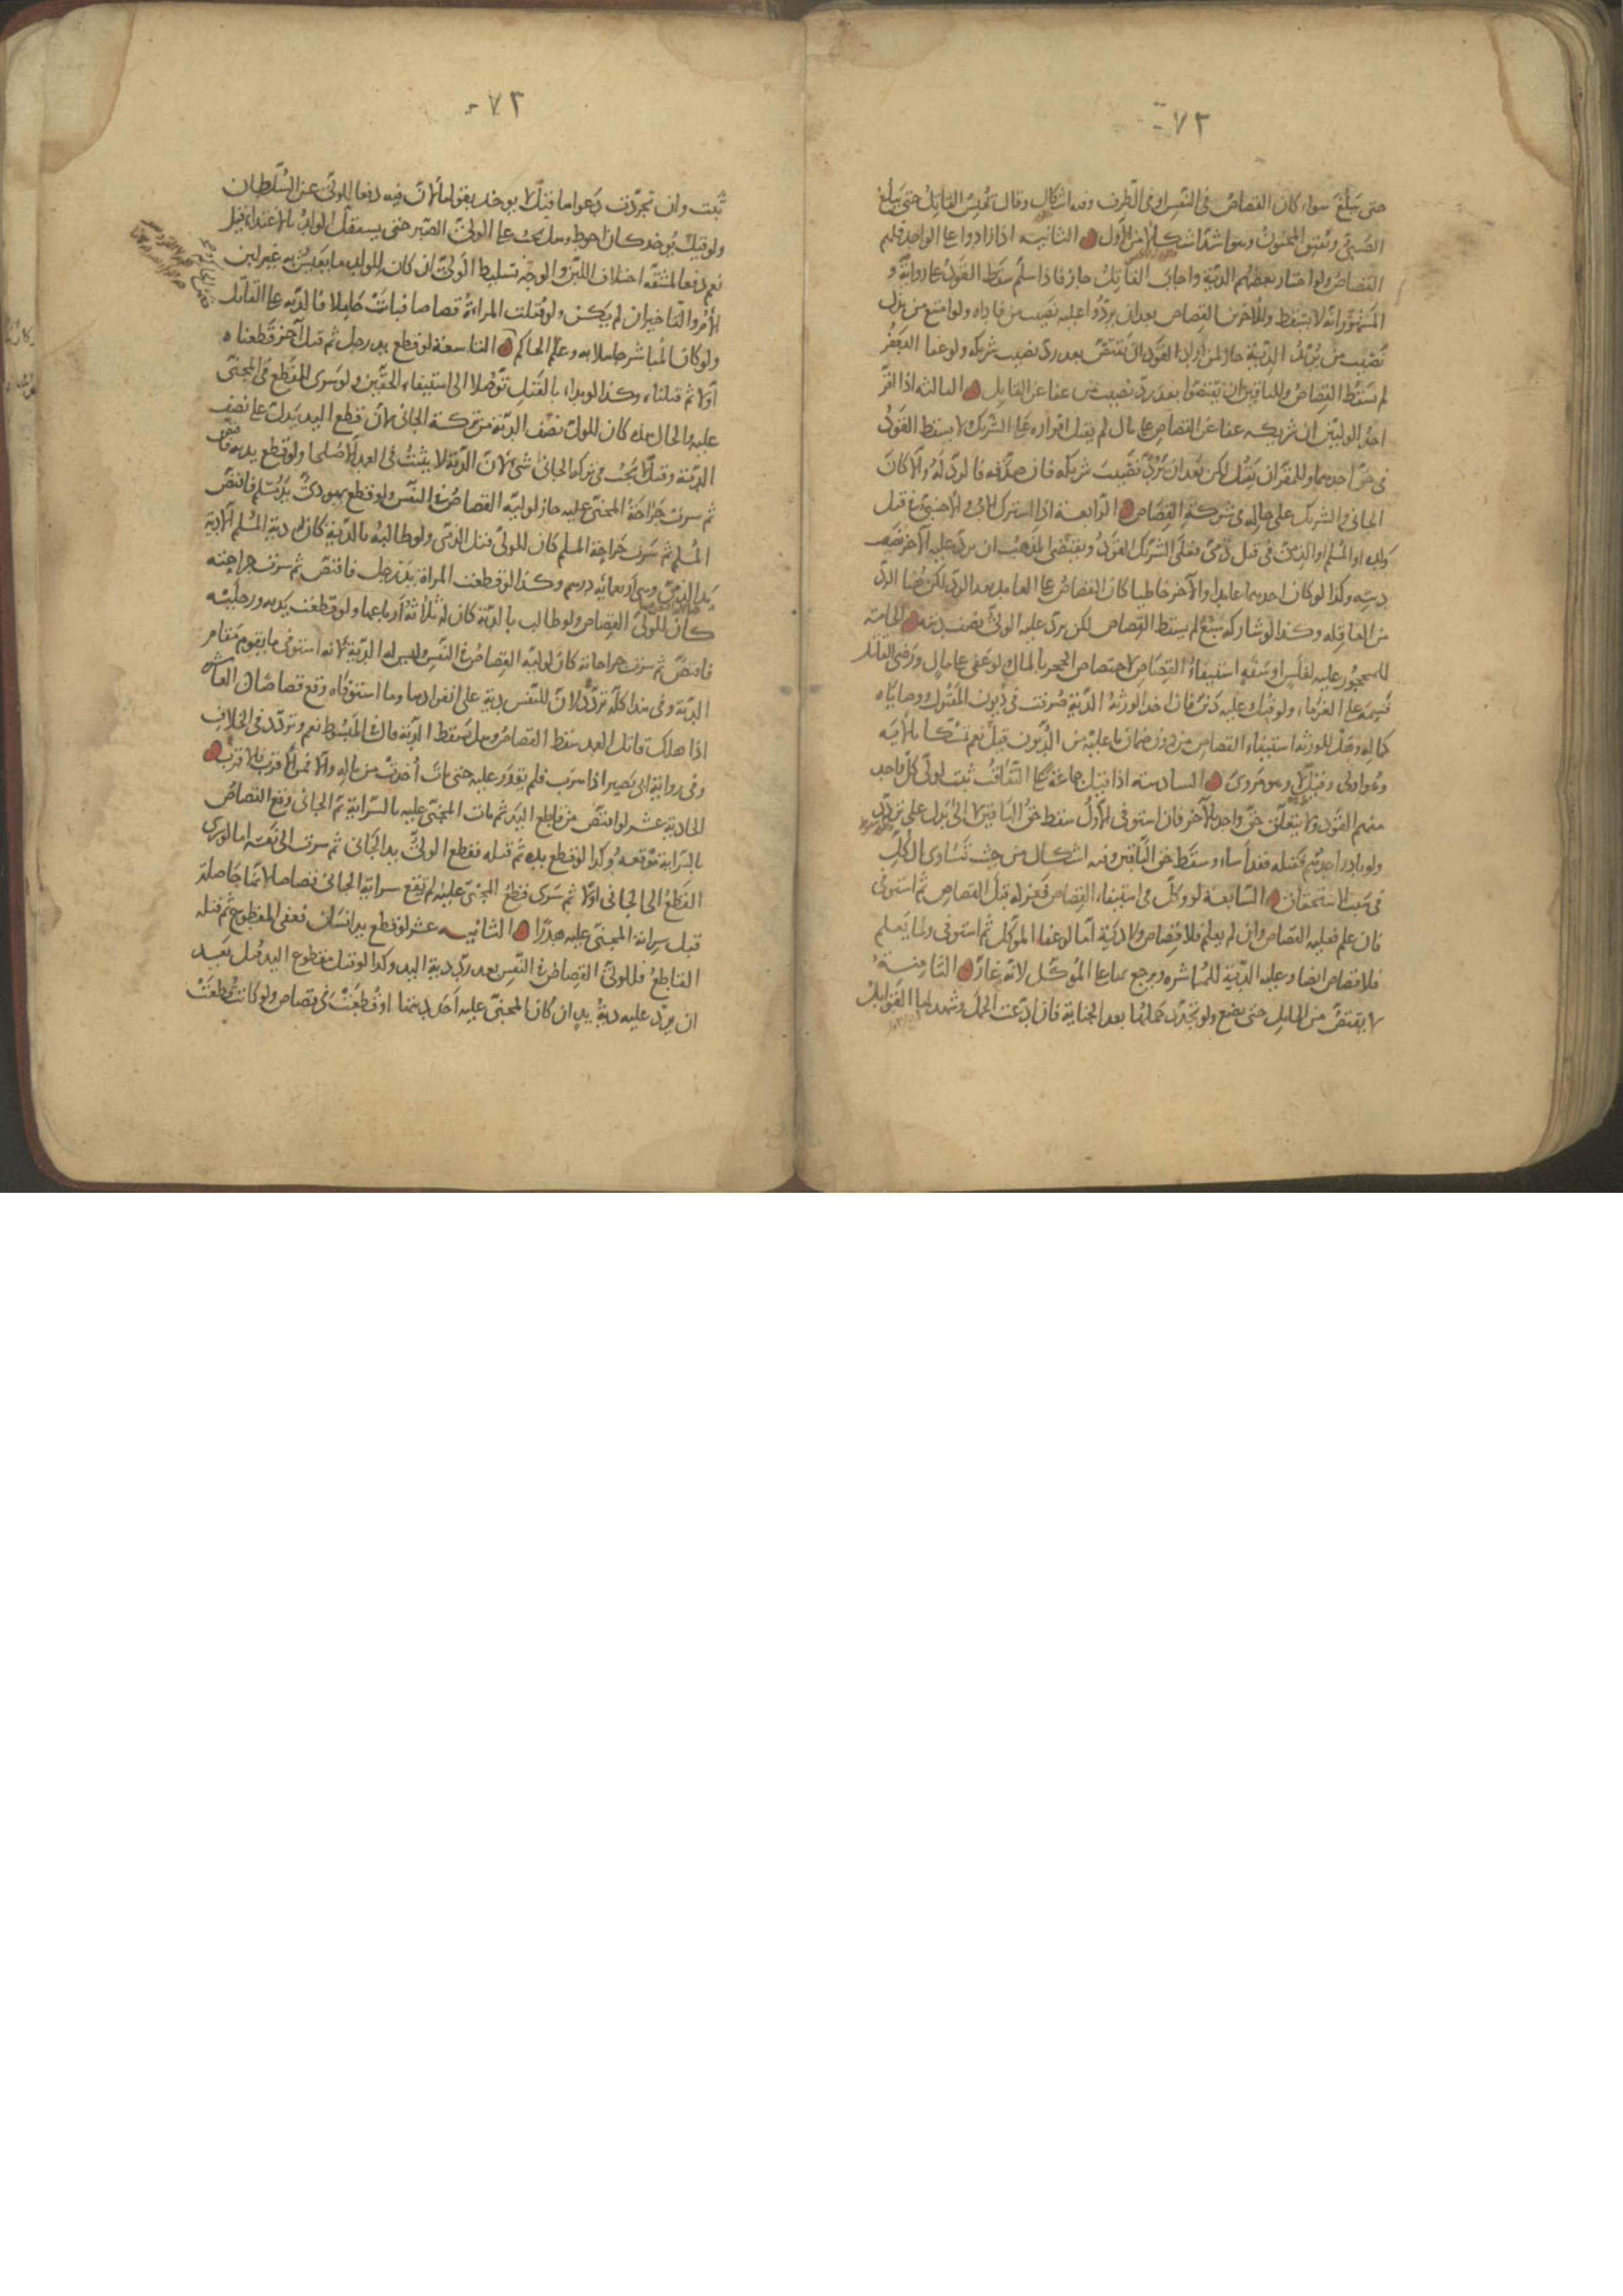 ٧٢
حتى يبلغ سواء كان القصاص في النفس او في الطرف وفيه اشكال وقال يحبس القاتل حتى يبلغ
الصبي ويفيق المجنون وهو اشد اشكالا من الاول الثانية اذا زادوا على الواحد فلهم
القصاص ولو اختار بعضهم الدية واجاب القاتل جاز فاذا سلم سقط القود على رواية و
المشهور انه لا يسقط وللآخرين القصاص بعد ان يردوا عليه نصيب من فاداه ولو امتنع من بذل
نصيب من يريد الدية جاز لمن اراد القود ان يقتص بعد رد نصيب شريكه ولو عفا البعض
لم يسقط القصاص وللباقين ان يقتصوا بعد رد نصيب من عفا على القاتل الثالثة اذا اقر
احد الوليين ان شريكه عفا عن القصاص على مال لم يقبل اقراره على الشريك ولا يسقط القود
في حق احدهما وللمقر ان يقتل لكن بعد ان يرد نصيب شريكه فان صدقه فالرد له والا كان
للجاني والشريك على حاله في شركة القصاص الرابعة اذا اشترك الاب والاجنبي في قتل
ولده او المسلم والذمي في قتل ذمي فعلى الشريك القود ويقتضي المذهب ان يرد عليه الآخر نصف
ديته وكذا لو كان احدهما عامدا والآخر خاطئا كان القصاص على العامد بعد الرد لكن هنا الرد
من العاقلة وكذا لو شاركه سبع لم يسقط القصاص لكن يرد عليه الولي نصف ديته الخامسة
للمحجور عليه لفلس او سفه استيفاء القصاص لاختصاص الحجر بالمال ولو عفى على مال ورضي القاتل
قسمه على الغرماء ولو قتل وعليه دين فان اخذ الورثة الدية صرفت في ديون المقتول ووصاياه
كماله وهل للورثة استيفاء القصاص من دون ضمان ما عليه من الديون قيل نعم تمسكا بالآية
وهو اولى وقيل لا وهو مروي السادسة اذا قتل جماعة على التعاقب ثبت لولي كل واحد
منهم القود ولا يتعلق حق واحد بالآخر فان استوفى الاول سقط حق الباقين لا الى بدل على تردد
ولو بادر احدهم فقتله فقد اساء وسقط حق الباقين وفيه اشكال من حيث تساوى الكل
في سبب الاستحقاق السابعة لو وكل في استيفاء القصاص فعزله قبل القصاص ثم استوفى
فان علم فعليه القصاص وان لم يعلم فلا قصاص ولا دية اما لو عفا الموكل ثم استوفى ولما يعلم
فلا قصاص ايضا وعليه الدية للمباشرة ويرجع بها على الموكل لانه غار الثامنة
لا يقتص من الحامل حتى تضع ولو تجدد حملها بعد الجناية فان ادعت الحمل وشهد لها القوابل
٧٣
ثبت وان تجردت دعواها قيل لا يؤخذ بقولها لان فيه دفعا للولي عن السلطان
ولو قيل يؤخذ كان احوط وهل يجب على الولي الصبر حتى يستقل الولد بالاغتذاء قيل
نعم دفعا لمشقة اختلاف اللبن والوجه تسليط الولي ان كان للولد ما يعيش به غير لبن
الام والتاخير ان لم يكن ولو قتلت المراة قصاصا فبانت حاملا فالدية على القاتل
ولو كان المباشر جاهلا به وعلم الحاكم التاسعة لو قطع يد رجل ثم قتل آخر قطعناه
اولا ثم قتلناه وكذا لو بدا بالقتل توصلا الى استيفاء الحقين ولو سرى القطع في المجني
عليه والحال هذه كان للولي نصف الدية من تركة الجاني لان قطع اليد بدل عن نصف
الدية وقيل لا يجب في تركة الجاني شيء لان الدية لا يثبت في العمد الا صلحا ولو قطع يديه فاقتص
ثم سرت جراحة المجني عليه جاز لوليه القصاص في النفس ولو قطع يهودي يد مسلم فاقتص
المسلم ثم سرت جراحة المسلم كان للولي قتل الذمي ولو طالب بالدية كان له دية المسلم الا دية
يد الذمي وهي اربعمائة درهم وكذا لو قطعت المراة يد رجل فاقتص ثم سرت جراحته
كان للولي القصاص ولو طالب بالدية كان له ثلاثة ارباعها ولو قطعت يديه ورجليه
فاقتص ثم سرت جراحاته كان لوليه القصاص في النفس وليس له الدية لانه استوفى ما يقوم مقام
الدية وفي هذا كله تردد لان للنفس دية على انفرادها وما استوفاه وقع قصاصا العاشرة
اذا هلك قاتل العمد سقط القصاص وهل تسقط الدية قال في المبسوط نعم وتردد في الخلاف
وفي رواية ابي بصير اذا هرب فلم يقدر عليه حتى مات اخذت من ماله والا فمن الاقرب فالاقرب
الحادية عشر لو اقتص من قاطع اليد ثم مات المجني عليه بالسراية ثم الجاني وقع القصاص
بالسراية موقعه وكذا لو قطع يده ثم قتله فقطع الولي يد الجاني ثم سرت الى نفسه اما لو سرى
القطع الى الجاني اولا ثم سرى قطع المجني عليه لم تقع سراية الجاني قصاصا لانها حاصلة
قبل سراية المجني عليه هدرا الثانية عشر لو قطع يد انسان فعفى المقطوع ثم قتله
القاطع فللولي القصاص في النفس بعد رد دية اليد وكذا لو قتل مقطوع اليد قتل بعد
ان يرد عليه دية يده ان كان المجني عليه اخذ ديتها او قطعت في قصاص ولو كانت قطعت